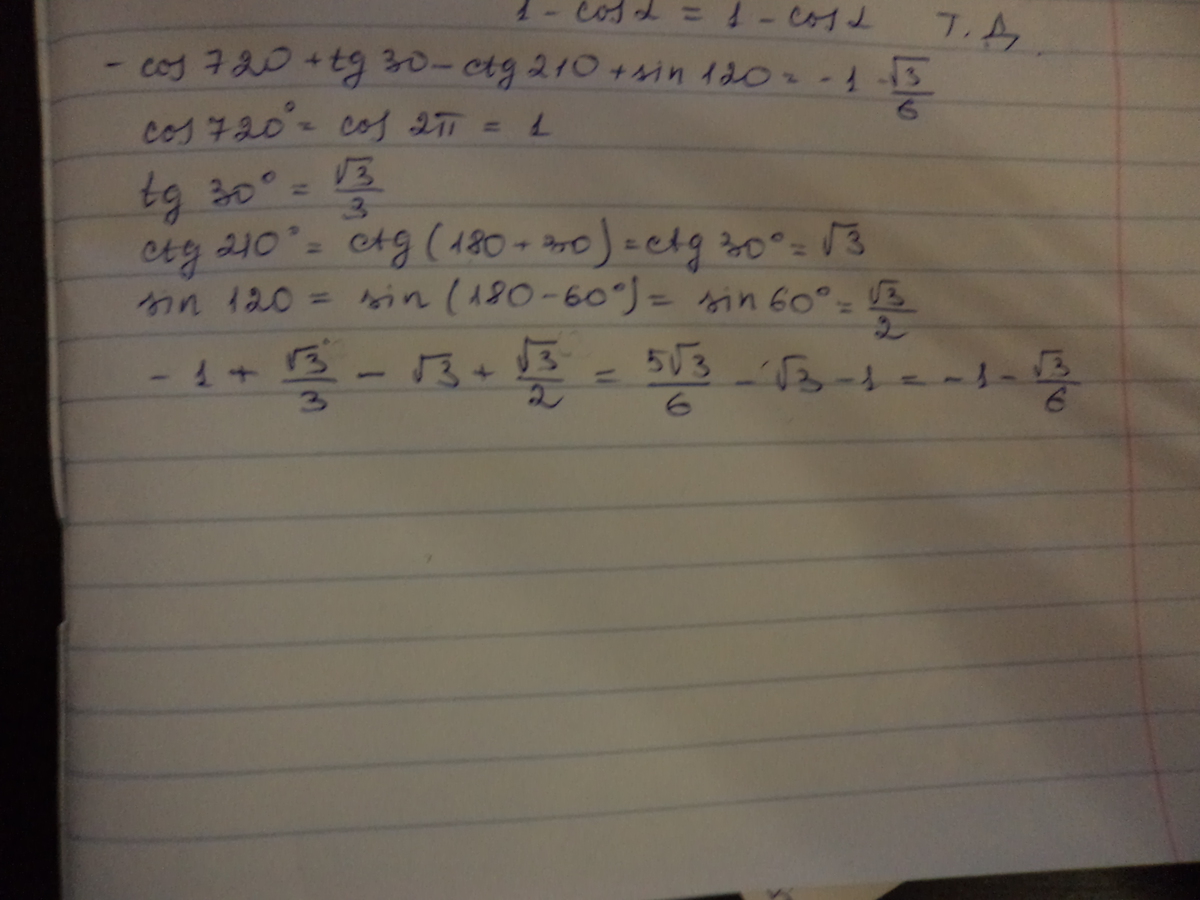 1 - cos α = 1 - cos α Т. Д.
- cos 720 + tg 30 - ctg 210 + sin 120 = - 1 - √3/6
cos 720° = cos 2π = 1
tg 30° = √3/3
ctg 210° = ctg (180 + 30) = ctg 30° = √3
sin 120 = sin (180 - 60°) = sin 60° = √3/2
- 1 + √3/3 - √3 + √3/2 = 5√3/6 - √3 - 1 = - 1 - √3/6